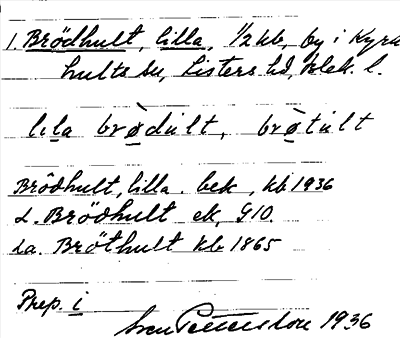 1. Brödhult, lilla, 1/2 kb, by i Kyrk
hults sn, Listers hd, Blek. l.
lıla brø̀dult, brø̀tult
Brödhult, lilla. bek, kb 1936
L. Brödhult ek, G10.
La. Bröthult kb 1865
Prep. i
Sven Pettersson 1936